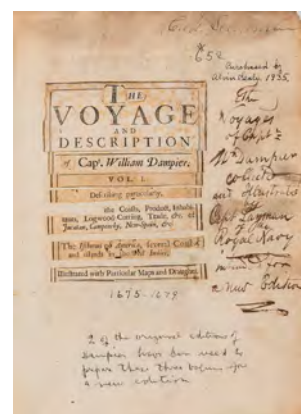 652
Purchased by
Alwin Realy. 1935.
THE
VOYAGE
AND
DESCRIPTION
of Capt. William Dampier.
VOL. I.
Describing particularly,
the Coasts, Product, Inhabi-
tants, Logwood-Cutting, Trade, &c. of
Jucatan, Campeachy, New-Spain, &c.
The Isthmus of America, several Coasts
and Islands in
Illustrated with Particular Maps and Draughts.
The
Voyages
of Captn
Wm Dampier
collected
and illustrated
by
Capt Layman
of the
Royal Navy
for
a new Edition
1675-1679
2 of the original editions of
Dampier have been used to
prepare these three volumes for
a new edition